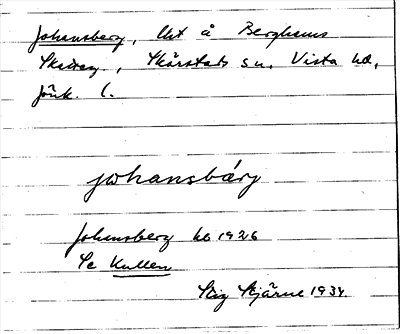 Johansberg, lht å Berghems
Skatteg., Skärstads sn, Vista hd,
Jönk. l.
johansbárj
Johansberg hb 1926
Se Kullen
Stig Stjärne 1934.